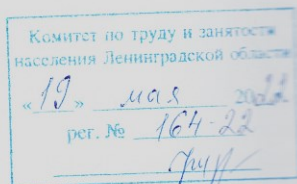 Комитет по труду и занятости
населения Ленинградской области
«19» мая 2022
рег. № 164-22